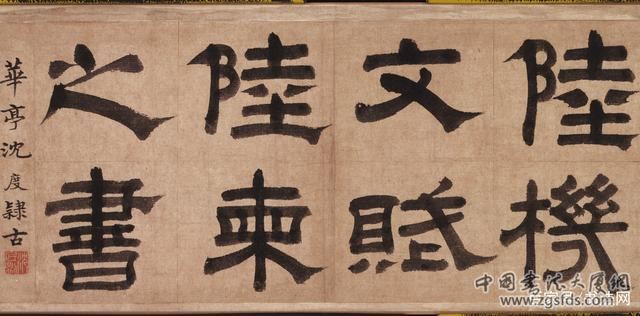 陸機
文賦
陸柬
之書
華亭沈度隸古
中國書法大厦網
www.zgsfds.com